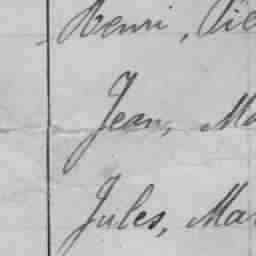 Henri,
Jean, Ma
Jules, Mar